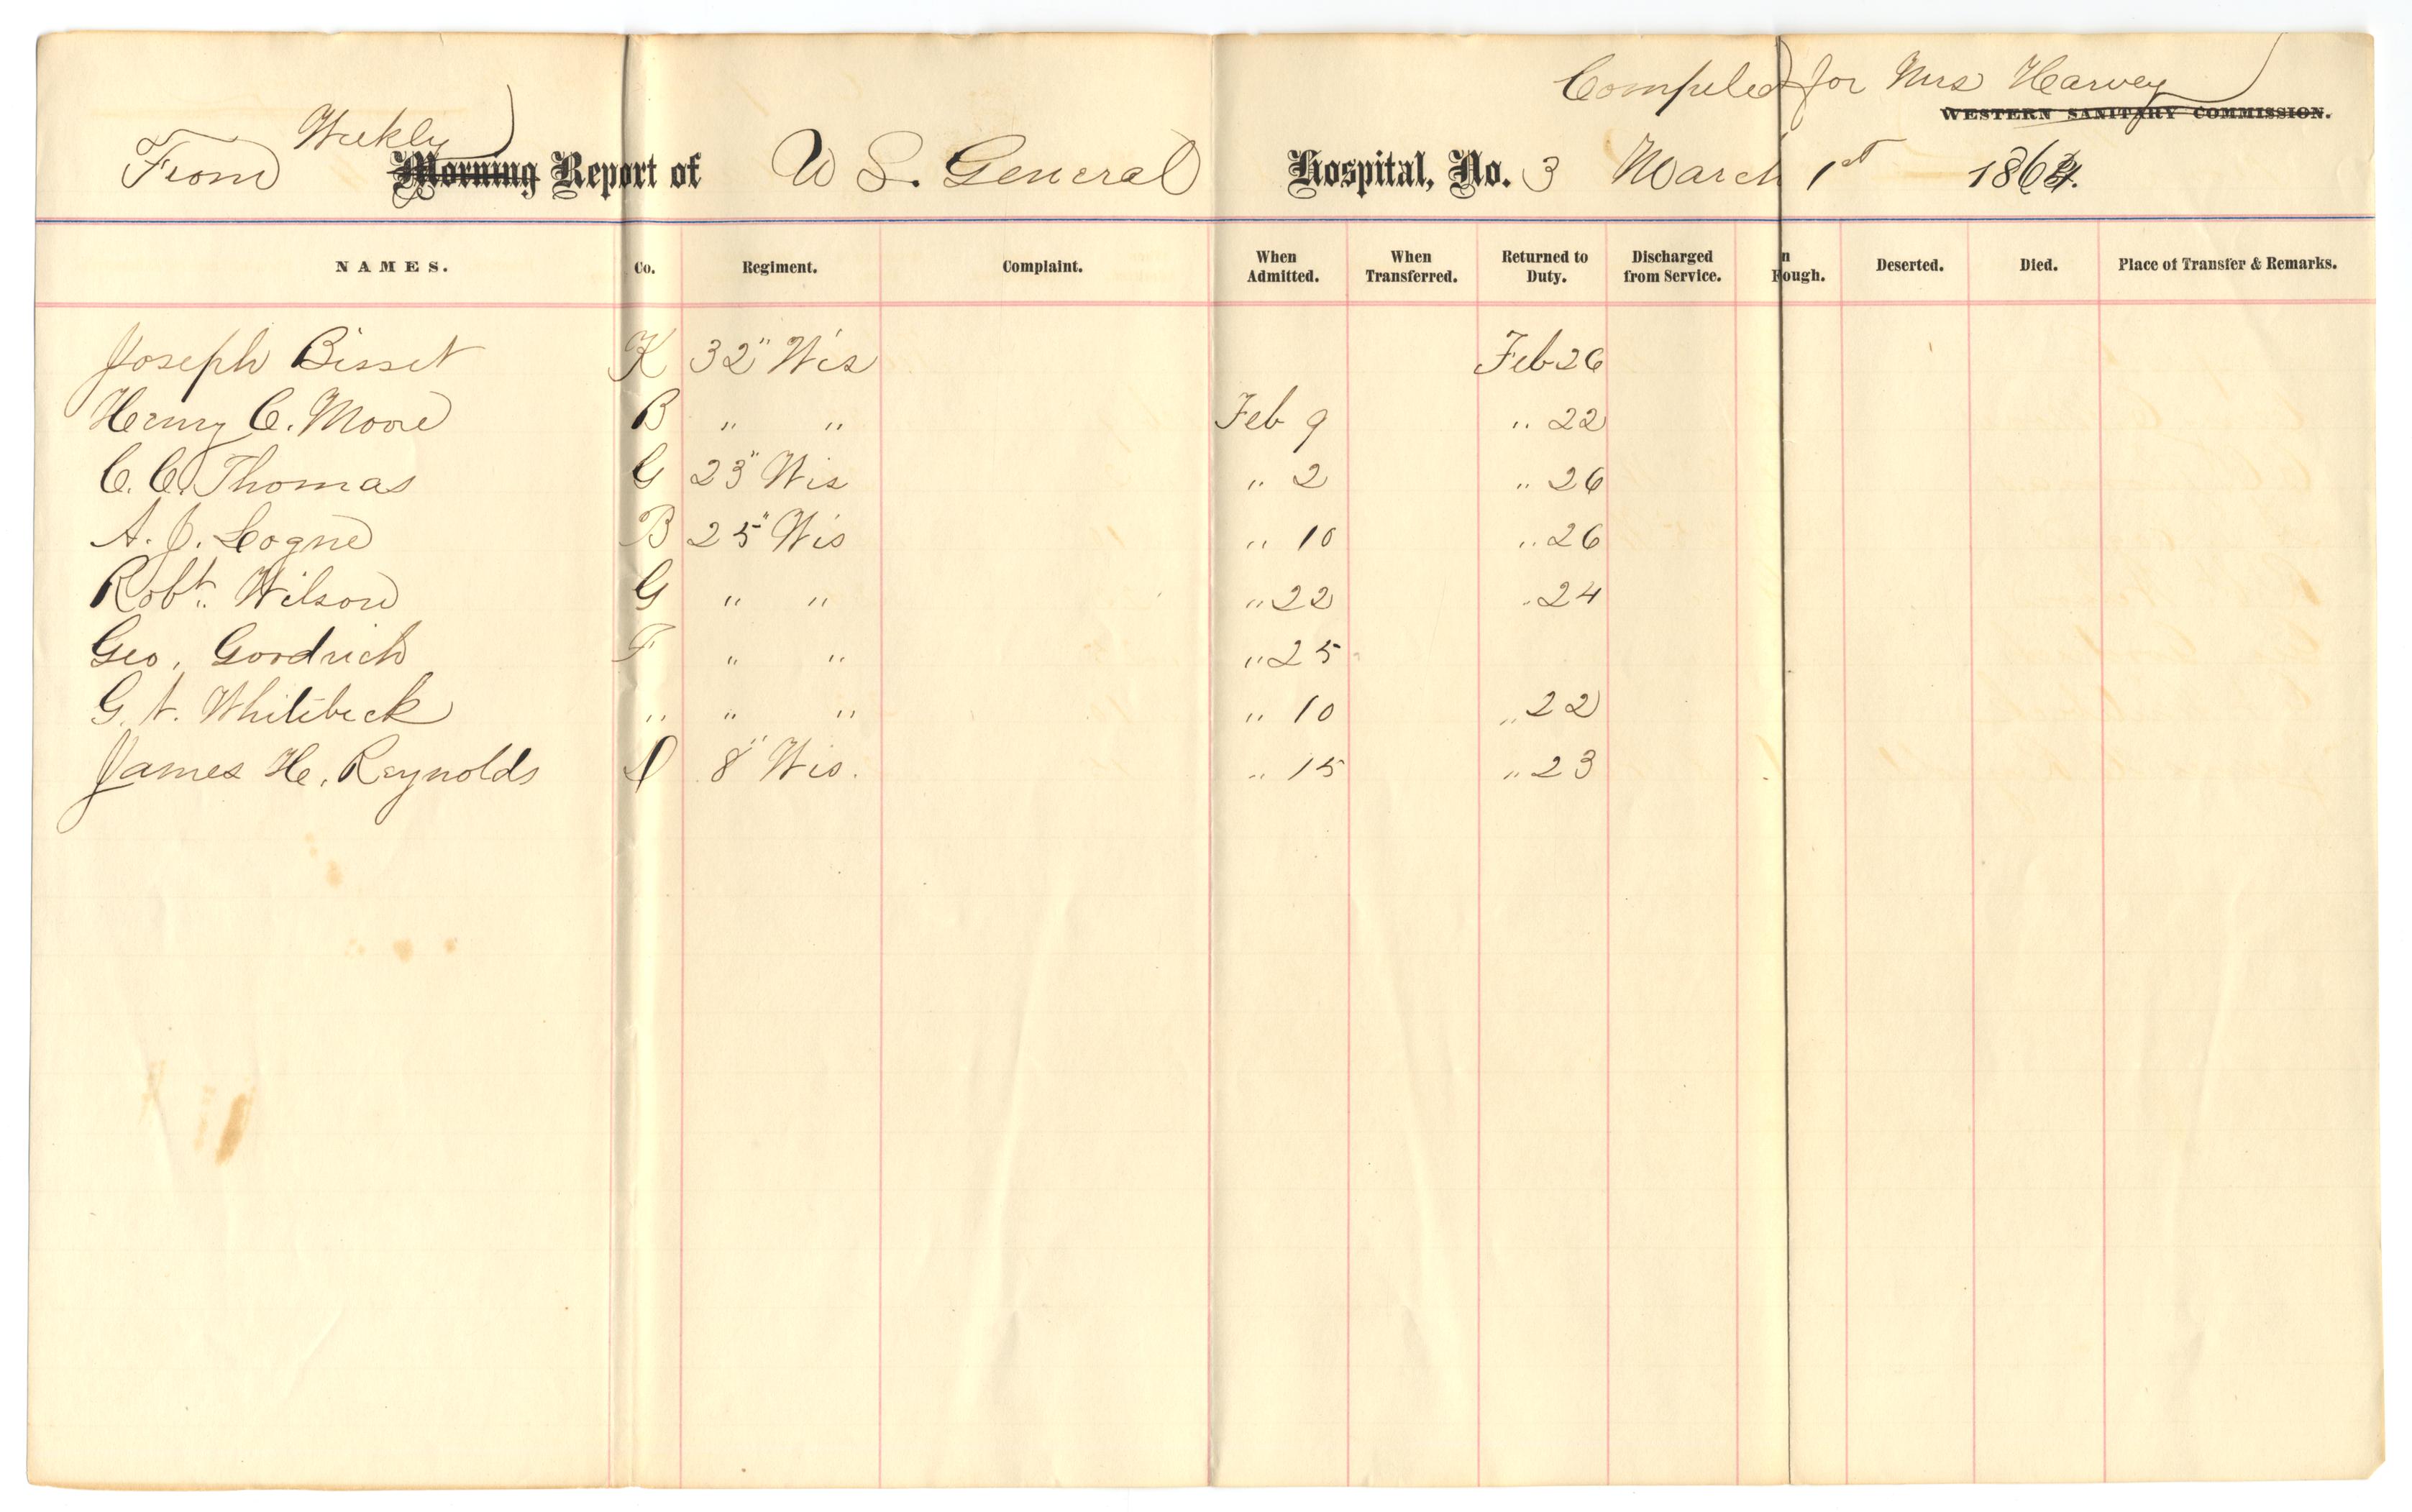 Compiled for Mrs Harvey
WESTERN SANITARY COMMISSION.
Weekly
From Morning Report of U S. General Hospital, No. 3 March 1st 1864.
NAMES. Co. Regiment. Complaint. When Admitted. When Transferred. Returned to Duty. Discharged from Service. n ough. Deserted. Died. Place of Transfer & Remarks.
Joseph Bisset K 32" Wis Feb 26
Henry C. Moore B " " Feb 9 " 22
C. C. Thomas G 23" Wis " 2 " 26
A. J. Logne B 25" Wis " 10 " 26
Robt. Wilson G " " " 22 " 24
Geo. Goodrich F " " " 25
G. A. Whitbeck " " " " 10 " 22
James H. Reynolds D 8" Wis. " 15 " 23